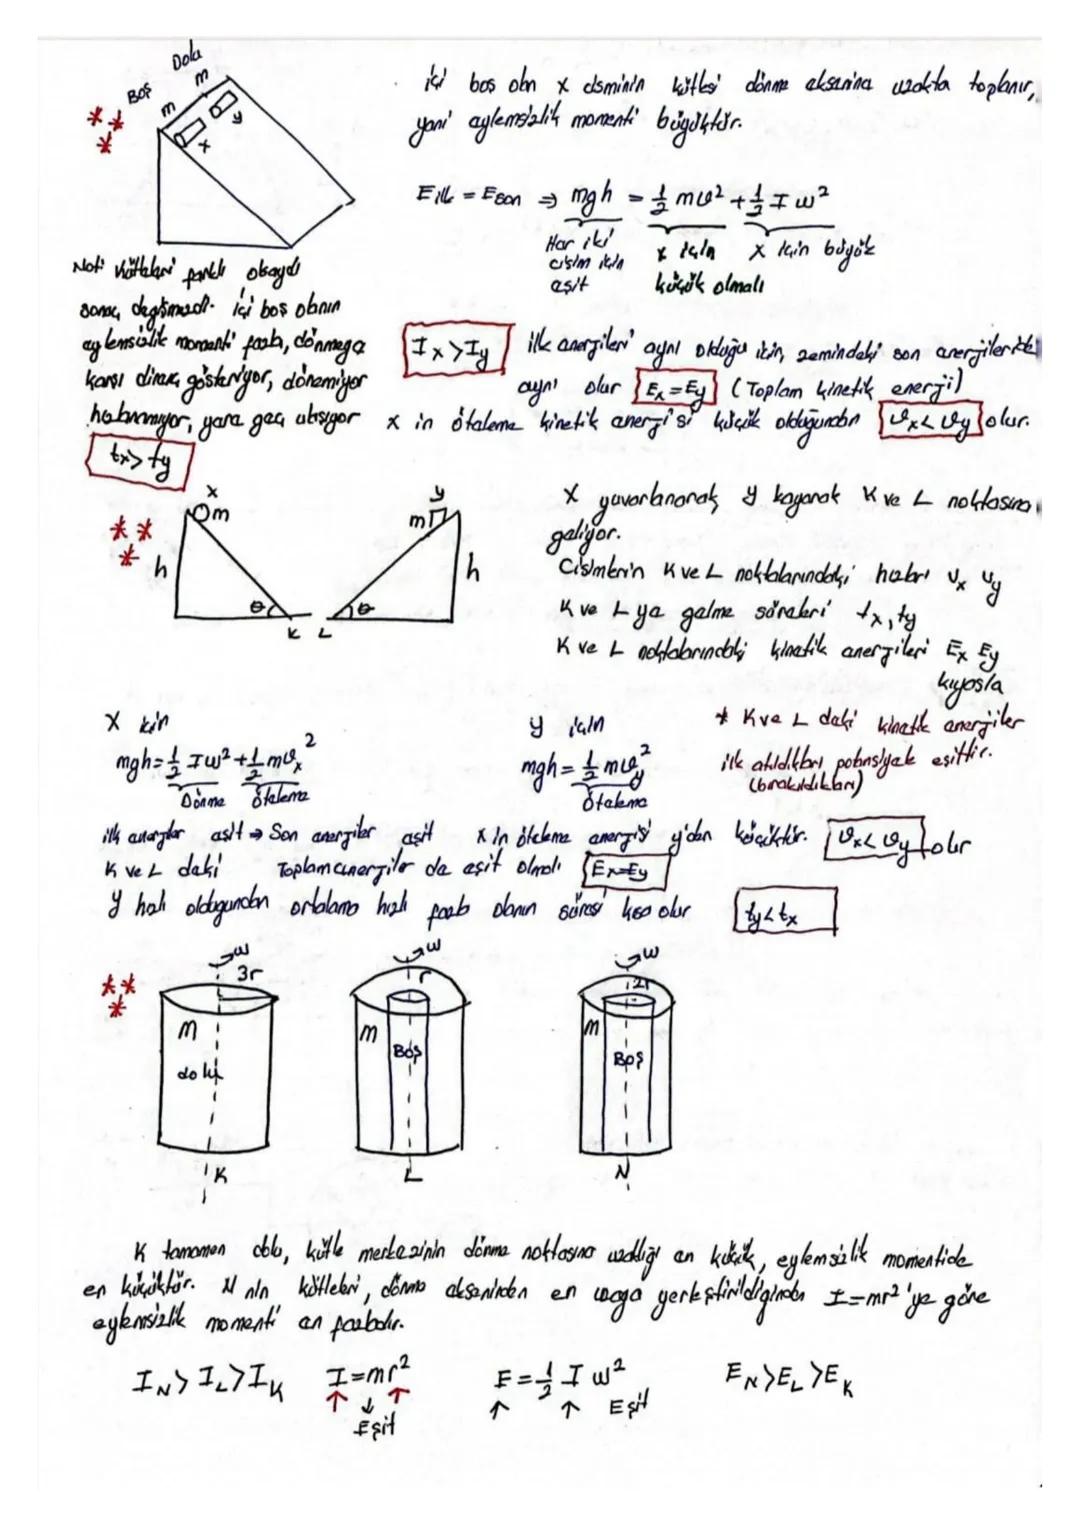 Boş Dolu
m m
x y
içi boş olan x cisminin kütlesi dönme eksenine uzakta toplanır,
yani eylemsizlik momenti büyüktür.
Eilk = Eson ⇒ mgh = 1/2 mυ² + 1/2 I w²
Her iki cisim için eşit
x için küçük olmalı
x için büyük
Not: Kütleleri farklı olsaydı
sonuç değişmezdi. içi boş olanın
eylemsizlik momenti fazla, dönmeye
karşı direnç gösteriyor, dönemiyor
hızlanamıyor, yere geç ulaşıyor
tx > ty
Ix > Iy ilk enerjileri aynı olduğu için, zemindeki son enerjileride
aynı olur Ex = Ey (Toplam kinetik enerji)
x in öteleme kinetik enerjisi küçük olduğundan υx < υy olur.
x m h θ K
y m h θ L
X yuvarlanarak y kayarak K ve L noktasına
geliyor.
Cisimlerin K ve L noktalarındaki hızları υx υy
K ve L ya gelme süreleri tx, ty
K ve L noktalarındaki kinetik enerjileri Ex Ey
kıyasla
X için
mgh = 1/2 I w² + 1/2 mυx²
Dönme Öteleme
y için
mgh = 1/2 mυy²
Öteleme
* K ve L deki kinetik enerjiler
ilk atıldıkları potansiyele eşittir.
(bırakıldıkları)
ilk enerjiler eşit → Son enerjiler eşit x in öteleme enerjisi y'den küçüktür. υx < υy olur
K ve L deki Toplam enerjiler de eşit olmalı Ex=Ey
y hızlı olduğundan ortalama hızı fazla olanın süresi kısa olur ty < tx
w 3r m dolu K
w r m Boş L
w 2r m Boş N
K tamamen dolu, kütle merkezinin dönme noktasına uzaklığı en küçük, eylemsizlik momentide
en küçüktür. N nin kütleleri, dönme ekseninden en uzağa yerleştirildiğinden I=mr² 'ye göre
eylemsizlik momenti en fazladır.
IN > IL > IK I=mr² E = 1/2 I w² EN > EL > EK
↑ ↓ ↑ ↑ ↑ Eşit
Eşit